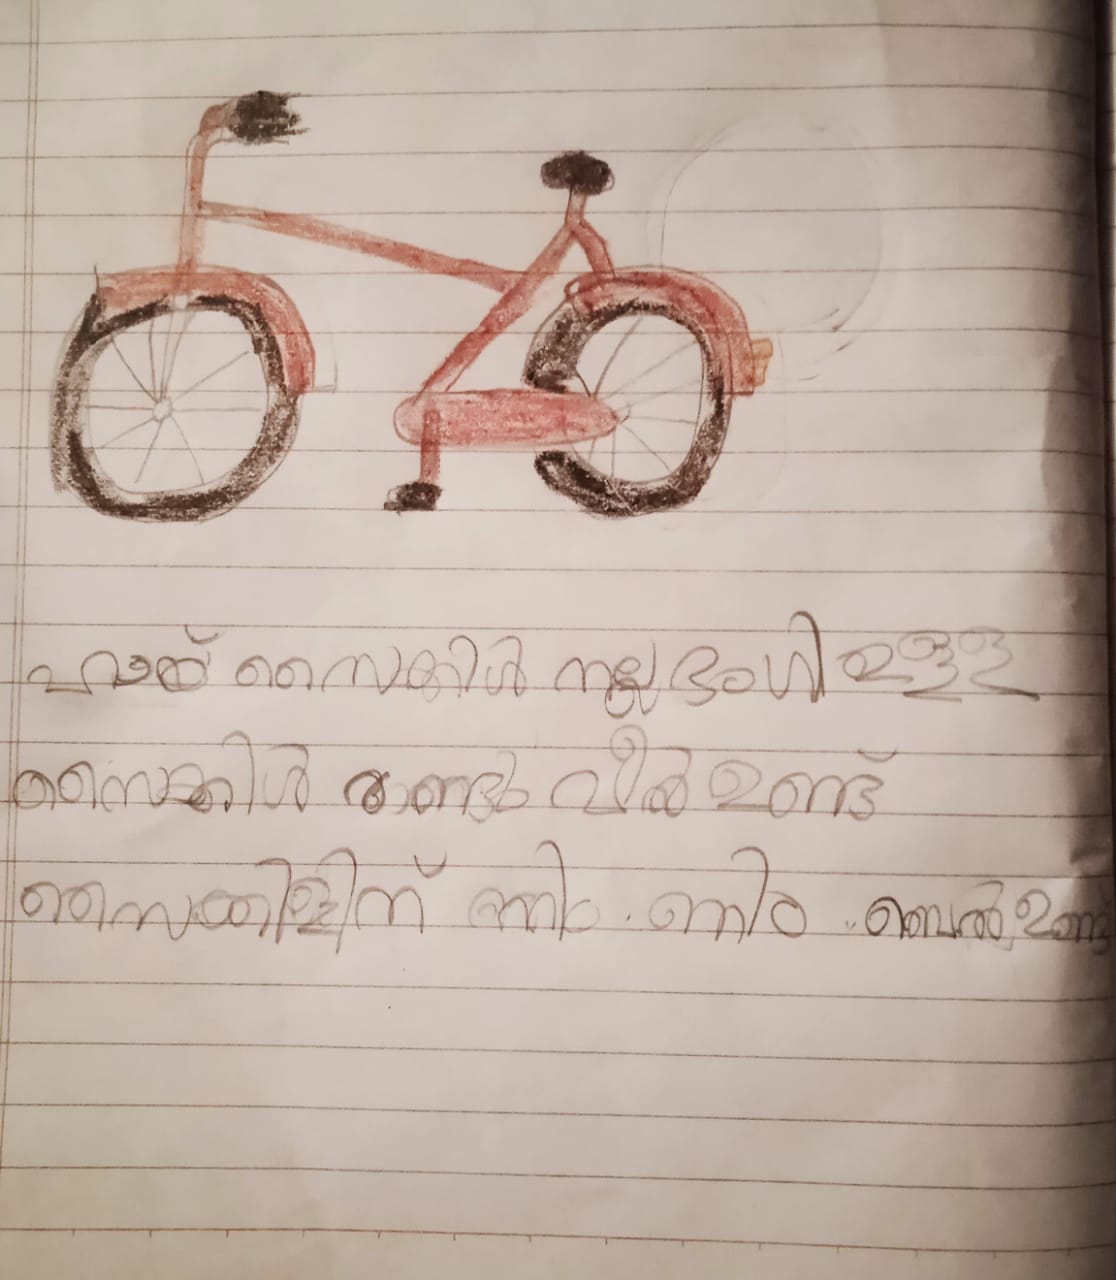 ഹായ് സൈക്കിൾ നല്ല ഭംഗി ഉള്ള
സൈക്കിൾ രണ്ടു വീൽ ഉണ്ട്
സൈക്കിളിന് ണിം . ണിം . ബെൽ ഉണ്ട്